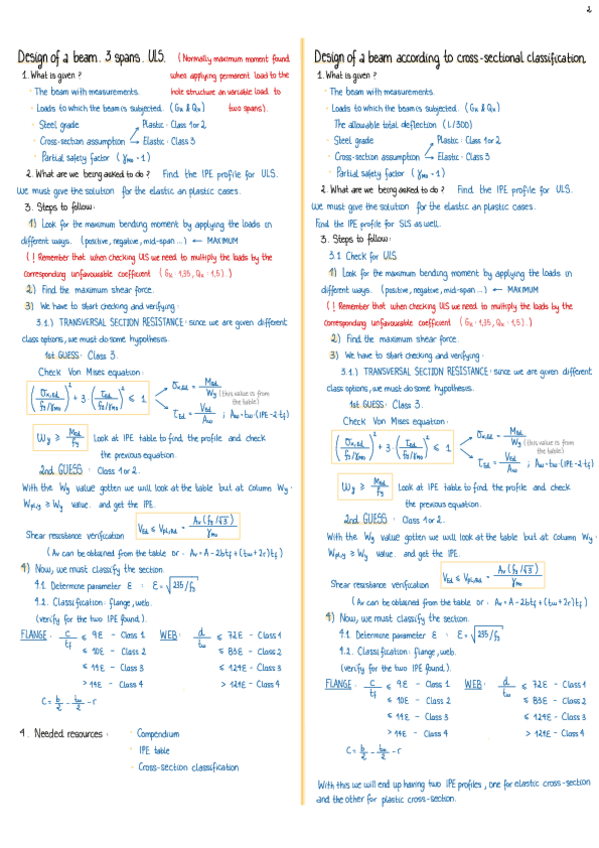 2
Design of a beam. 3 spans. ULS. (Normally maximum moment found
1. What is given? when applying permanent load to the
· The beam with measurements. hole structure an variable load to
· Loads to which the beam is subjected. (Gk & Qk) two spans).
· Steel grade Plastic · Class 1 or 2
· Cross-section assumption Elastic · Class 3
· Partial safety factor (γM0 = 1)
2. What are we being asked to do? Find the IPE profile for ULS.
We must give the solution for the elastic an plastic cases.
3. Steps to follow:
1) Look for the maximum bending moment by applying the loads in
different ways. (positive, negative, mid-span...) ← MAXIMUM
(! Remember that when checking ULS we need to multiply the loads by the
corresponding unfavourable coefficient (Gk · 1,35, Qk · 1,5).)
2) Find the maximum shear force.
3) We have to start checking and verifying:
3.1.) TRANSVERSAL SECTION RESISTANCE: since we are given different
class options, we must do some hypotheses.
1st GUESS: Class 3.
Check Von Mises equation:
(σx,Ed / fy/γM0)² + 3·(τEd / fy/γM0)² ≤ 1
σx,Ed = MEd / Wy (this value is from the table)
τEd = VEd / Aw ; Aw = tw·(IPE-2·tf)
Wy ≥ MEd / fy Look at IPE table to find the profile and check
the previous equation.
2nd GUESS · Class 1 or 2.
With the Wy value gotten we will look at the table but at column Wy.
Wpl,y ≥ Wy value. and get the IPE.
Shear resistance verification VEd ≤ Vpl,Rd = Av (fy/√3) / γM0
(Av can be obtained from the table or: Av = A - 2btf + (tw + 2r)tf)
4) Now, we must classify the section.
4.1. Determine parameter ε : ε = √235/fy
4.2. Classification: flange, web.
(verify for the two IPE found).
FLANGE: c/tf ≤ 9ε - Class 1 WEB: d/tw ≤ 72ε - Class 1
≤ 10ε - Class 2 ≤ 83ε - Class 2
≤ 14ε - Class 3 ≤ 124ε - Class 3
> 14ε - Class 4 > 124ε - Class 4
c = b/2 - tw/2 - r
4. Needed resources: · Compendium
· IPE table
· Cross-section classification
Design of a beam according to cross-sectional classification.
1. What is given?
· The beam with measurements.
· Loads to which the beam is subjected. (Gk & Qk)
The allowable total deflection (L/300)
· Steel grade Plastic · Class 1 or 2
· Cross-section assumption Elastic · Class 3
· Partial safety factor (γM0 = 1)
2. What are we being asked to do? Find the IPE profile for ULS.
We must give the solution for the elastic an plastic cases.
Find the IPE profile for SLS as well.
3. Steps to follow:
3.1 Check for ULS
1) Look for the maximum bending moment by applying the loads in
different ways. (positive, negative, mid-span...) ← MAXIMUM
(! Remember that when checking ULS we need to multiply the loads by the
corresponding unfavourable coefficient (Gk · 1,35, Qk · 1,5).)
2) Find the maximum shear force.
3) We have to start checking and verifying:
3.1.) TRANSVERSAL SECTION RESISTANCE: since we are given different
class options, we must do some hypotheses.
1st GUESS: Class 3.
Check Von Mises equation:
(σx,Ed / fy/γM0)² + 3·(τEd / fy/γM0)² ≤ 1
σx,Ed = MEd / Wy (this value is from the table)
τEd = VEd / Aw ; Aw = tw·(IPE-2·tf)
Wy ≥ MEd / fy Look at IPE table to find the profile and check
the previous equation.
2nd GUESS · Class 1 or 2.
With the Wy value gotten we will look at the table but at column Wy.
Wpl,y ≥ Wy value. and get the IPE.
Shear resistance verification VEd ≤ Vpl,Rd = Av (fy/√3) / γM0
(Av can be obtained from the table or: Av = A - 2btf + (tw + 2r)tf)
4) Now, we must classify the section.
4.1 Determine parameter ε : ε = √235/fy
4.2. Classification: flange, web.
(verify for the two IPE found).
FLANGE: c/tf ≤ 9ε - Class 1 WEB: d/tw ≤ 72ε - Class 1
≤ 10ε - Class 2 ≤ 83ε - Class 2
≤ 14ε - Class 3 ≤ 124ε - Class 3
> 14ε - Class 4 > 124ε - Class 4
c = b/2 - tw/2 - r
With this we will end up having two IPE profiles, one for elastic cross-section
and the other for plastic cross-section.